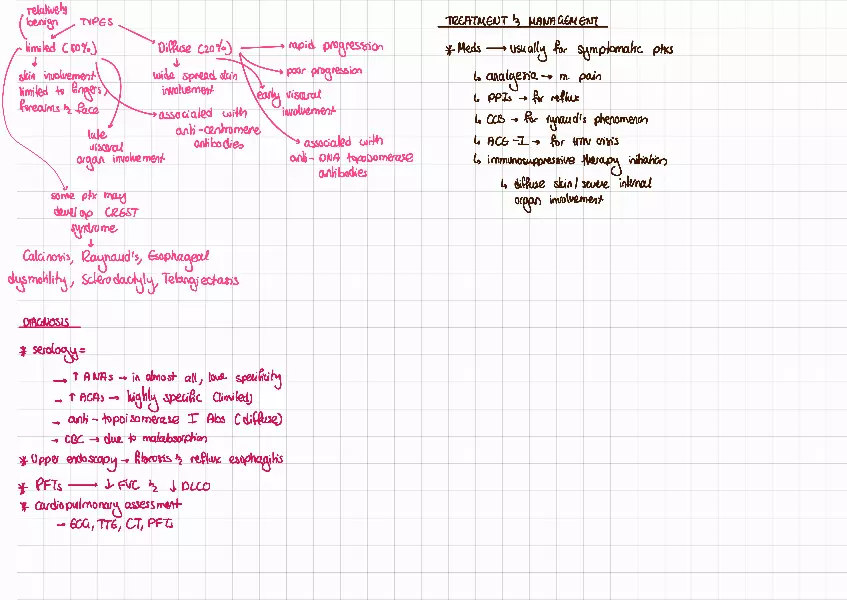 relatively
benign
TYPES
limited (80%)
Diffuse (20%)
rapid progression
poor progression
early visceral
involvement
associated with
anti-DNA topoisomerase
antibodies
skin involvement
limited to fingers,
forearms & face
wide spread skin
involvement
associated with
anti-centromere
antibodies
late
visceral
organ involvement
some ptx may
develop CREST
syndrome
Calcinosis, Raynaud's, Esophageal
dysmotility, Sclerodactyly, Telangiectasis
DIAGNOSIS
* serology =
→ ↑ ANAs → in almost all, low specificity
→ ↑ ACAs → highly specific (limited)
→ anti-topoisomerase I Abs (diffuse)
→ CBC → due to malabsorption
* Upper endoscopy → fibrosis & reflux esophagitis
* PFTs → ↓ FVC & ↓ DLCO
* cardiopulmonary assessment
→ ECG, TTE, CT, PFTs
TREATMENT & MANAGEMENT
* Meds → usually for symptomatic ptxs
↳ analgesia → m. pain
↳ PPIs → for reflux
↳ CCB → for rynaud's phenomenon
↳ ACE-I → for HTN crisis
↳ immunosuppressive therapy initiation
↳ diffuse skin/severe internal
organ involvement